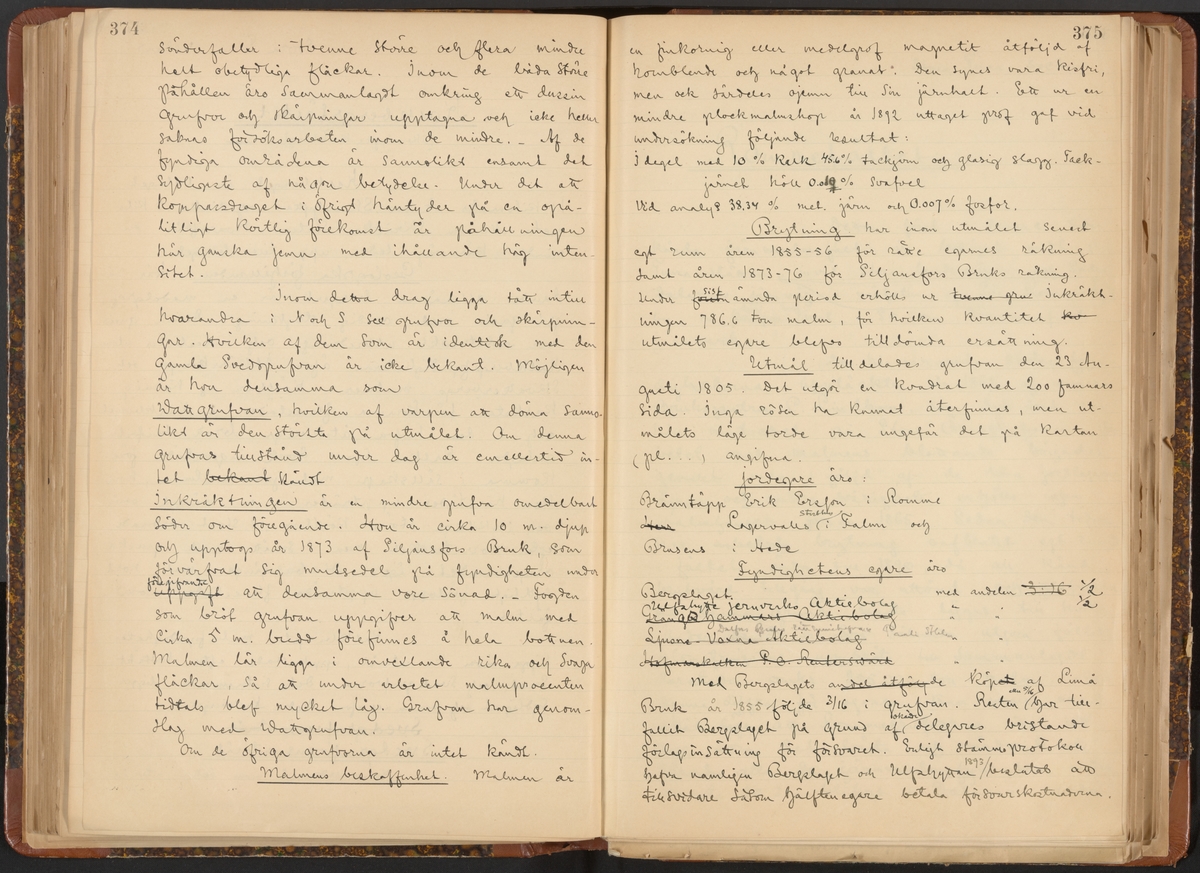 374
sönderfaller i tvenne större och flera mindre
helt obetydliga fläckar. Inom de båda större
påhållen äro sammanlagdt omkring ett dussin
grufvor och skärpningar upptagna och icke heller
saknas försöksarbeten inom de mindre. – Af de
fyndiga områdena är sannolikt ensamt det
sydligaste af någon betydelse. Under det att
kompassdraget i öfrigt häntyder på en opå-
litligt körtlig förekomst är påhållningen
här ganska jemn med ihållande hög inten-
sitet.
Inom detta drag ligga tätt intill
hvarandra i N och S sex grufvor och skärpnin-
gar. Hvilken af dem som är identisk med den
gamla Svedgrufvan är icke bekant. Möjligen
är hon densamma som
Wattgrufvan, hvilken af varpen att döma sanno-
likt är den största på utmålet. Om denna
grufvas tillstånd under dag är emellertid in-
tet bekant kändt
Inkräktningen är en mindre grufva omedelbart
söder om föregående. Hon är cirka 10 m. djup
och upptogs år 1873 af Siljansfors Bruk, som
förvärfvat sig mutsedel på fyndigheten under
föregifvande
uppgift att densamma vore sönad. – Fogden
som bröt grufvan uppgifver att malm med
cirka 5 m. bredd förefinnes å hela bottnen.
Malmen lär ligga i omvexlande rika och svaga
fläckar, så att under arbetet malmprocenten
tidtals blef mycket låg. Grufvan har genom-
slag med Wattgrufvan.
Om de öfriga grufvorna är intet kändt.
Malmens beskaffenhet. Malmen är
375
en finkornig eller medelgrof magnetit åtföljd af
hornblende och något granat. Den synes vara kisfri,
men ock särdeles ojemn till sin järnhalt. Ett ur en
mindre plockmalmshop år 1892 uttaget prof gaf vid
undersökning följande resultat:
I degel med 10 % kalk 45.6% tackjärn och glasig slagg. Tack-
järnet höll % svafvel
Vid analys 38.34 % met. järn och 0.007 % fosfor.
Brytning har inom utmålet senast
egt rum åren 1855-56 för egarnes räkning
samt åren 1873-76 för Siljansfors Bruks räkning.
sist
Under nämnda period erhölls ur tvenne gru Inkräkt-
ningen 786.6 ton malm, för hvilken kvantitet
utmålets egare blefvo tilldömda ersättning.
Utmål tilldelades grufvan den 23 Au-
gusti 1805. Det utgör en kvadrat med 200 famnars
sida. Inga rösen ha kunnat återfinnas, men ut-
målets läge torde vara ungefär det på kartan
(pl. . . ., angifna.
Jordegare äro:
Brämstäpp Erik Ersson i Romme
Sterbhus
Herr Lagervalls i Falun och
Brusens i Hede
Fyndighetens egare äro
Bergslaget med andelen 3:16 1/2
Ulfshyttejernverks Aktiebolag " " 1/2
Hammars Aktiebolag
Ljusne-Voxna Aktiebolag " "
Hofmarskalken P. O. Reuterswärd " "
Med Bergslagets andel åtföljde köpet af Limå
Bruk år 1855 följde 3/16 i grufvan. Resten har till-
fallit Bergslaget på grund af delegares bristande
förlagsinsättning för försvaret. Enligt stämmoprotokoll
1893
hafva nämligen Bergslaget och Ulfshyttan beslutat att
tillsvidare såsom hälftenegare betala försvarskostnaderna.